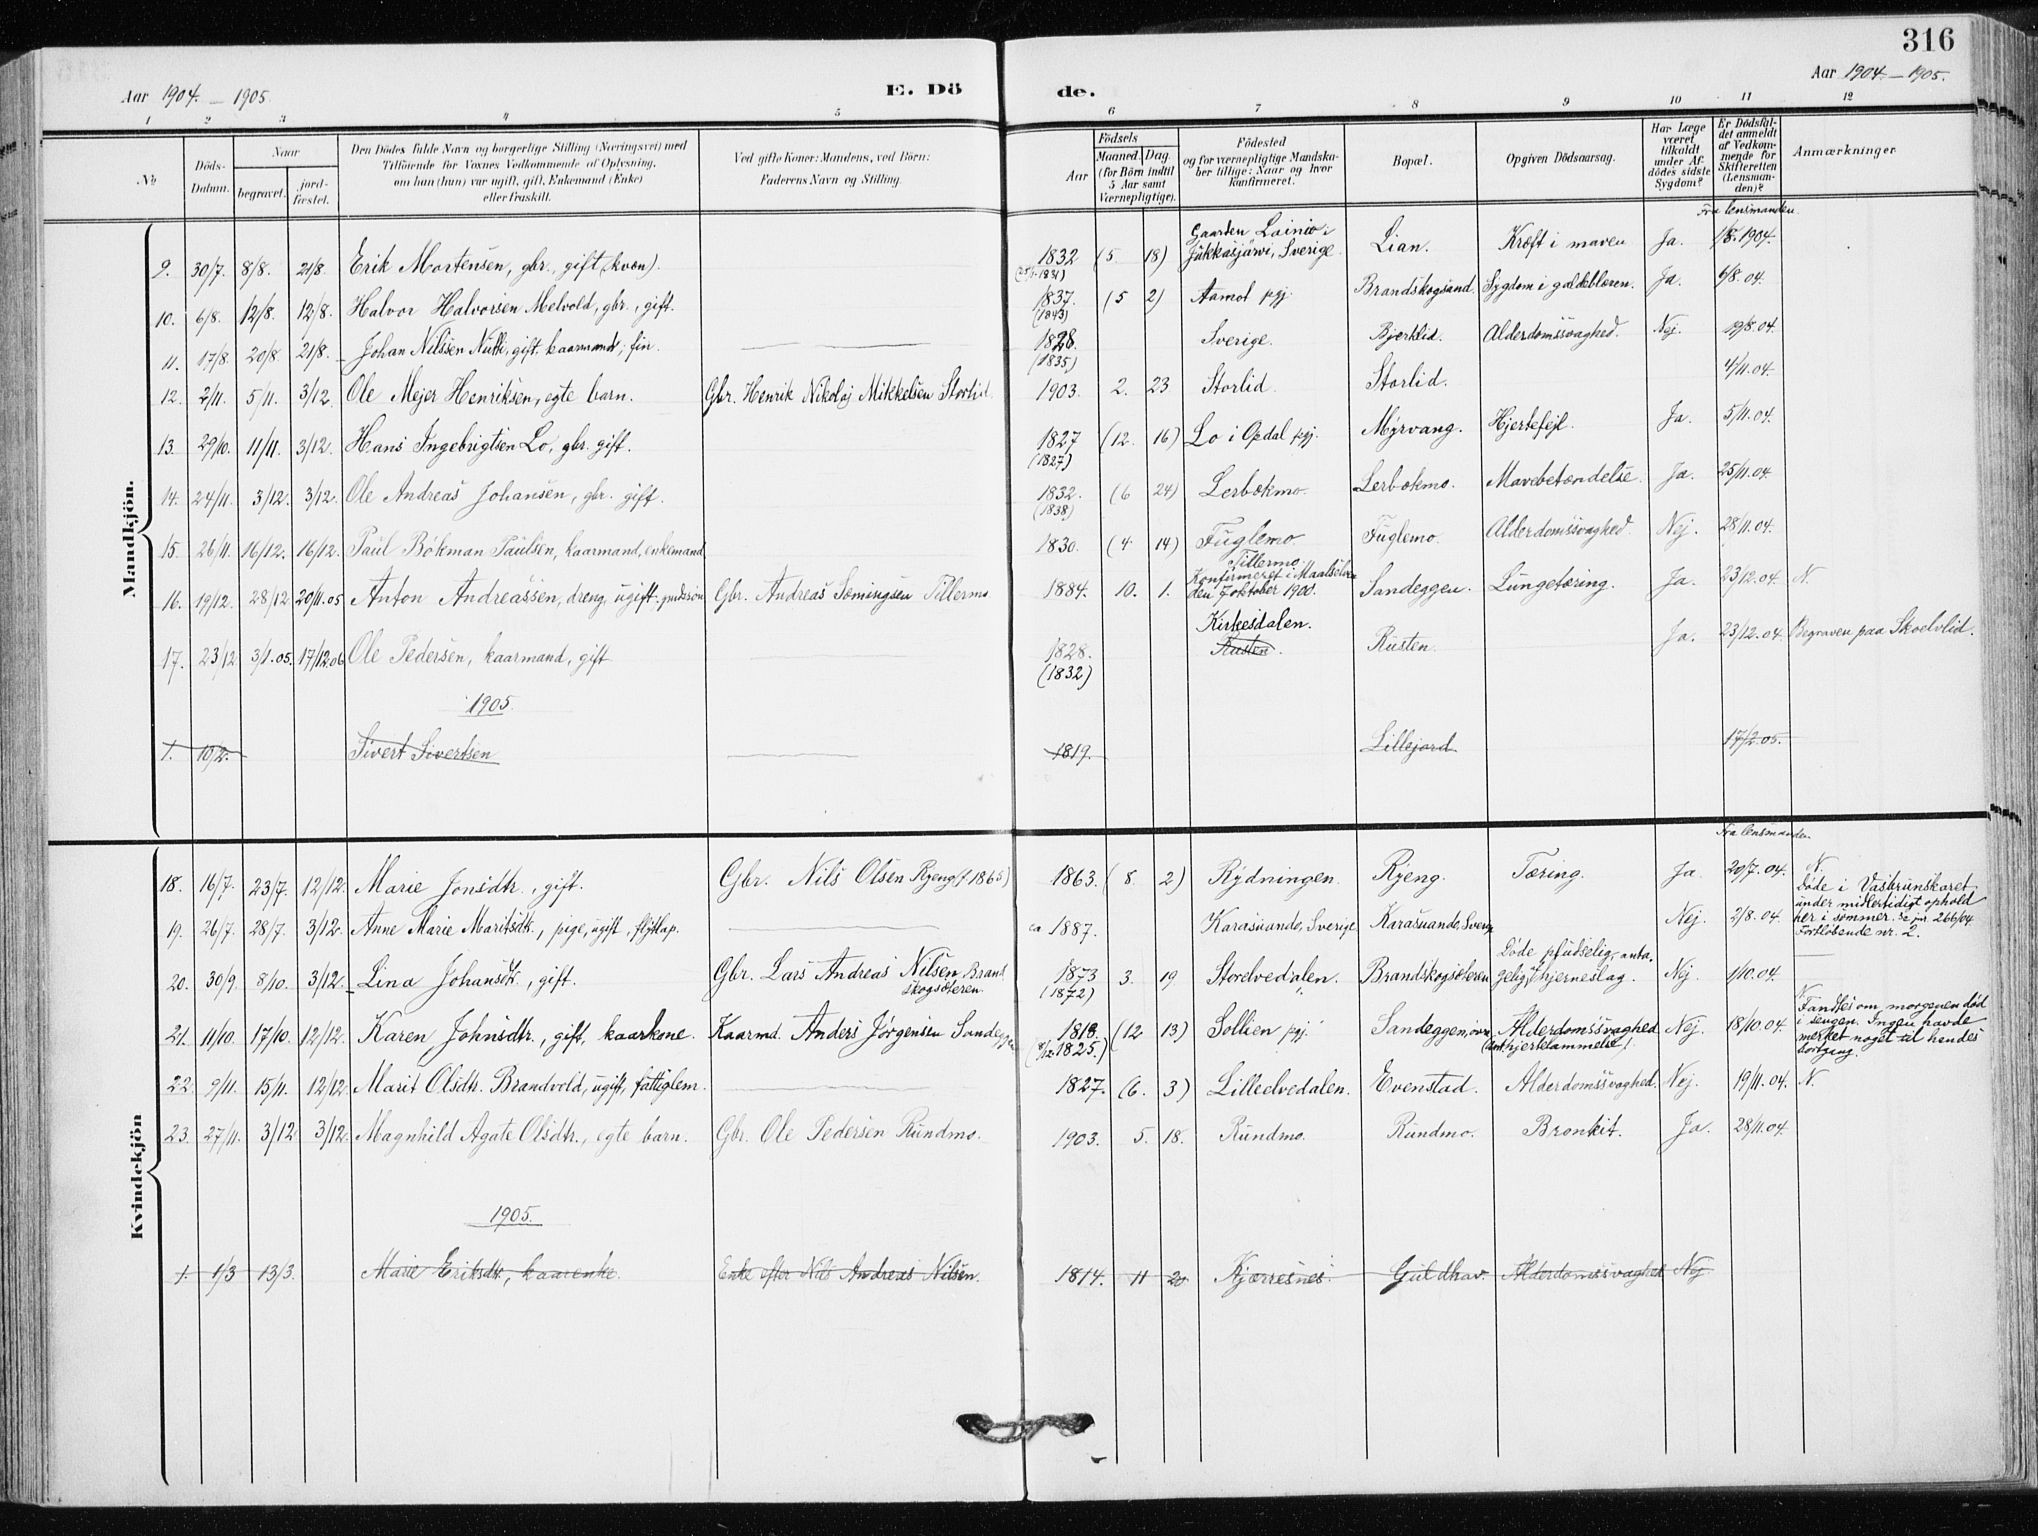 316
Aar 1904 - 1905.
E. Dö
de.
Aar 1904 - 1905.
1 2 3 4 5 6 7 8 9 10 11 12
No
Döds-Datum.
Naar
begravet.
jord-fæstet.
Den Dödes fulde Navn og borgerlige Stilling (Næringsvei) med
Tilföiende for Voxnes Vedkommende af Oplysning,
om han (hun) var ugift, gift, Enkemand (Enke)
eller fraskilt.
Ved gifte Koner: Mandens, ved Börn:
Faderens Navn og Stilling.
Födsels
Aar
Maaned. Dag
(for Börn indtil
5 Aar samt
Værnepligtige).
Födested
og for værnepligtige Mandska-
ber tillige: Naar og hvor
konfirmeret.
Bopæl.
Opgiven Dödsaarsag.
Har Læge
været
tilkaldt
under Af-
dödes sidste
Sygdom?
Er Dödsfal-
det anmeldt
af Vedkom-
mende for
Skifteretten
(Lensman-
den)?
Anmærkninger
Mandkjön.
Fra lensmanden
9. 30/7 8/8. 21/8. Erik Mortensen, gbr., gift (kvæn). 1832 (5 18) Gaarden Lainio i Jukkasjärvi, Sverige. Lian. Kræft i maven Ja. 1/8. 1904.
10. 6/8. 12/8. 12/8. Halvor Halvorsen Melvold, gbr., gift. 1837. (1843) (5 2) Aamot pgj. Brandskogsund. Sygdom i galdeblæren. Ja. 6/8. 04.
11. 17/8 20/8. 21/8. Johan Nilsen Nutti, gift kaarmand, fin. 1828. (1835) Sverige. Bjerklid. Alderdomssvaghed. Nej. 19/8. 04.
12. 2/11. 5/11. 3/12. Ole Mejer Henriksen, egte barn. Gbr. Henrik Nikolaj Mikkelsen Storlid. 1903. 2. 23 Storlid. Storlid. 4/11. 04.
13. 29/10. 11/11. 3/12. Hans Ingebrigtsen Lo, gbr. gift. 1827 (1827) (12. 16) Lo i Opdal pgj. Myrvang. Hjertefejl. Ja. 5/11. 04.
14. 24/11. 3/12. 3/12. Ole Andreas Johansen, gbr. gift. 1832. (1838) (6 24) Lerbokmo. Lerbokmo. Mavebetændelse. Ja. 25/11. 04.
15. 26/11. 16/12. 16/12. Paul Bökman Paulsen, kaarmand, enkemand 1830. (4 14) Fuglemo. Fuglemo. Alderdomssvaghed. Nej. 28/11. 04.
16. 19/12. 28/12 20/11. 05 Anton Andreassen, dreng, ugift. Gbr. Andreas Somingsen Tillermo 1884. 10. 1. Tillermo. Konfirmeret i Maalselven den 7 oktober 1900. Sandeggen. Lungetæring. Ja. 23/12. 04. N.
17. 23/12 3/1. 05. 17/12 06 Ole Pedersen, kaarmand, gift 1828. (1832) Kirkesdalen. Rusten. Rusten. Ja. 23/12. 04. Begraven paa Skoelvlid.
1905.
1. 10/2. Sivert Sivertsen 1819. Lillejord 17/2. 05.
Kvindekjön
Fra lensmanden
18. 16/7. 23/7. 12/12. Marie Jonsdtr., gift. Gbr. Nils Olsen Ryeng (f 1865) 1863. (8. 2) Rydningen. Ryeng. Tæring. Ja. 20/7. 04. N.
19. 26/7. 28/7. 3/12. Anne Marie Maritsdtr., pige, ugift, flytlap. ca 1887. Karasuando, Sverige. Karasuando, Sverige Nej. 2/8. 04. Döde i Vasbrunskaret under midlertidigt ophold her i sommer. Se jnr. 266/04. Fortløbende nr. 2.
20. 30/9. 8/10. 3/12. Lina Johansdtr., gift. Gbr. Lars Andreas Nilsen Brandskogsæteren. 1873 (1872) 3. 19 Storelvedalen. Brandskogsæteren Döde pludselig, antagelig af hjerneslag. Nej. 1/10. 04.
21. 11/10. 17/10. 12/12. Karen Johnsdtr., gift, kaarkone. Kaarmd. Anders Jørgensen Sandeggen 1818. (8/12. 1825.) (12 13) Sollien pgj. Sandeggen, övre Alderdomssvaghed (hjertelammelse). Nej. 18/10. 04. N Fandtes om morgenen död i sengen. Ingen havde merket noget til hendes bortgang.
22. 9/11. 15/11. 12/12. Marit Olsdtr. Brandvold, ugift, fattiglem. 1827. (6. 3) Lilleelvedalen. Evenstad. Alderdomssvaghed. Nej. 19/11. 04. N.
23. 27/11. 3/12 3/12. Magnhild Agate Olsdtr., egte barn. Gbr. Ole Pedersen Rundmo. 1903. 5. 18. Rundmo. Rundmo. Bronkit. Ja. 28/11. 04.
1905.
1. 1/3 13/3. Marie Eriksdtr., kaarenke. Enke efter Nils Andreas Nilsen. 1814. 11 20 Kjærresnes. Guldhav. Alderdomssvaghed Nej.